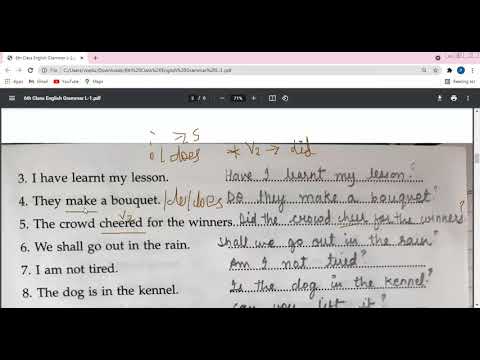 6th Class English Grammar L-1.pdf
Gmail YouTube Maps
Reading list
6th Class English Grammar L-1.pdf
2 / 6
71%
i → s
o / does * V2 → did
3. I have learnt my lesson. Have I learnt my lesson?
4. They make a bouquet. /do/does Do they make a bouquet?
V2
5. The crowd cheered for the winners. Did the crowd cheer for the winners?
6. We shall go out in the rain. Shall we go out in the rain?
7. I am not tired. Am I not tired?
8. The dog is in the kennel. Is the dog in the kennel?
Can you lift it?